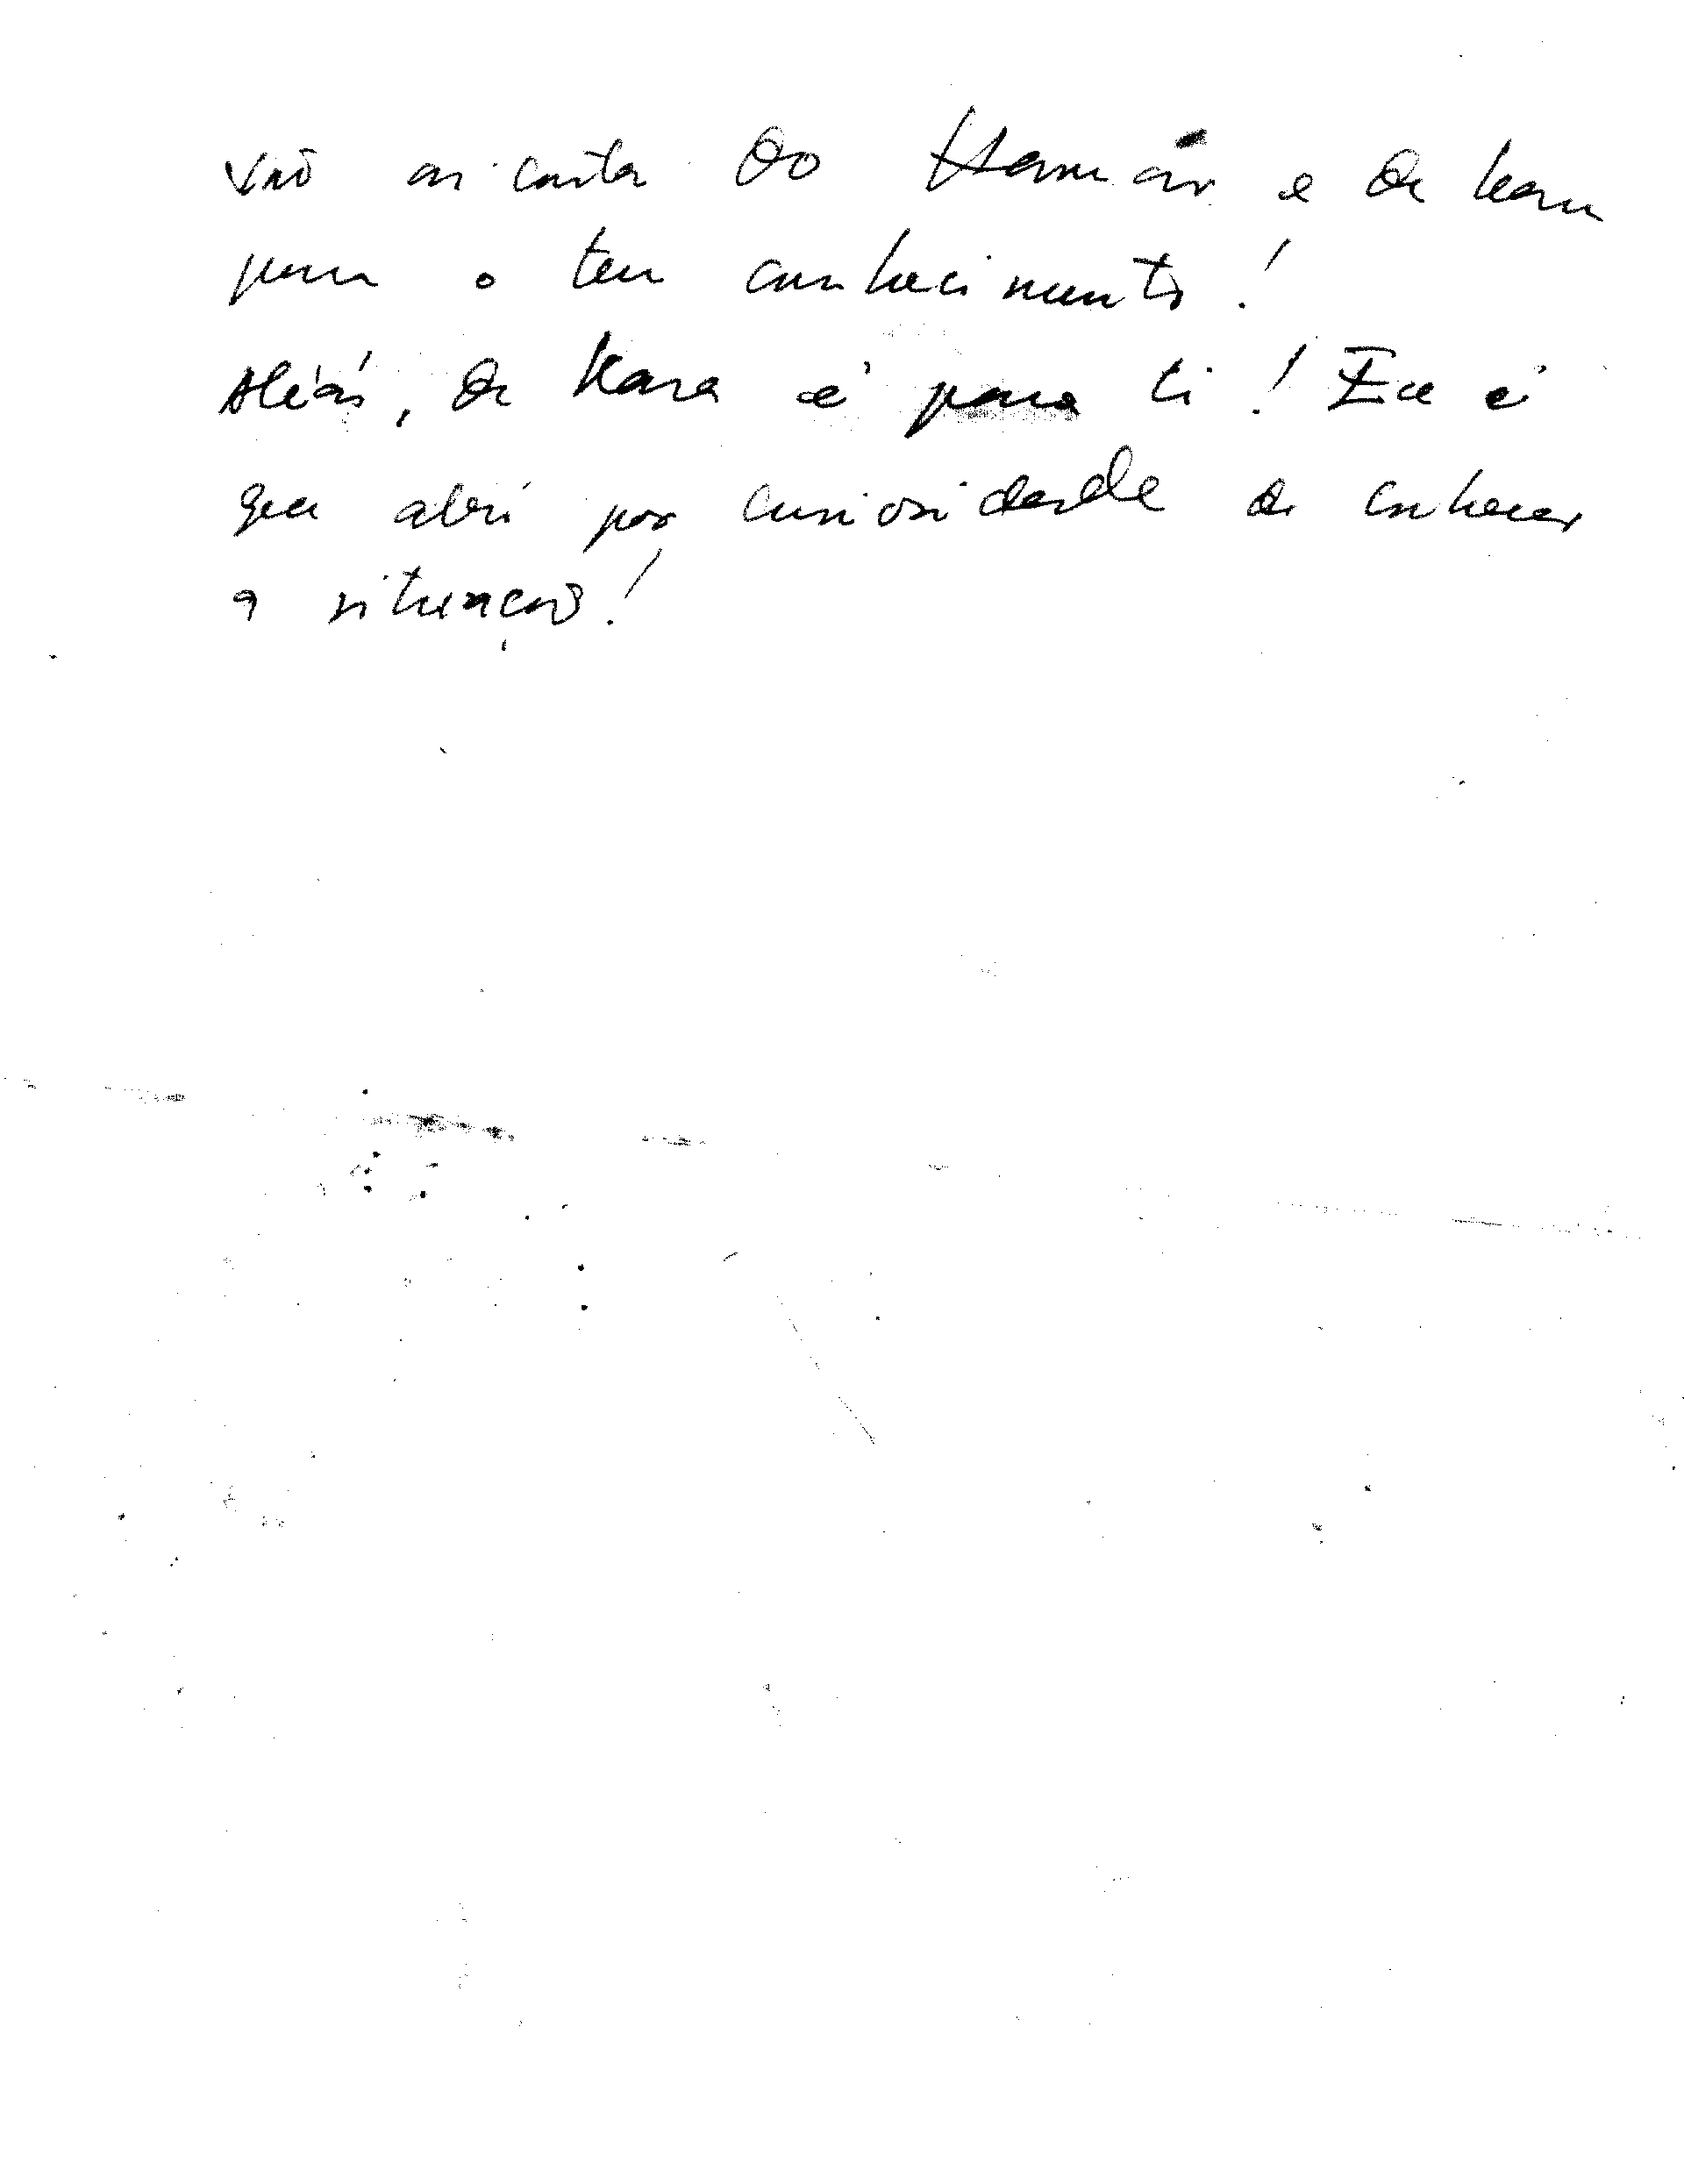 Vão as cartas do Hernâni e de Kara
para o teu conhecimento!
Aliás, de Kara é para ti! Eu é
que abri por curiosidade de conhecer
a situação!